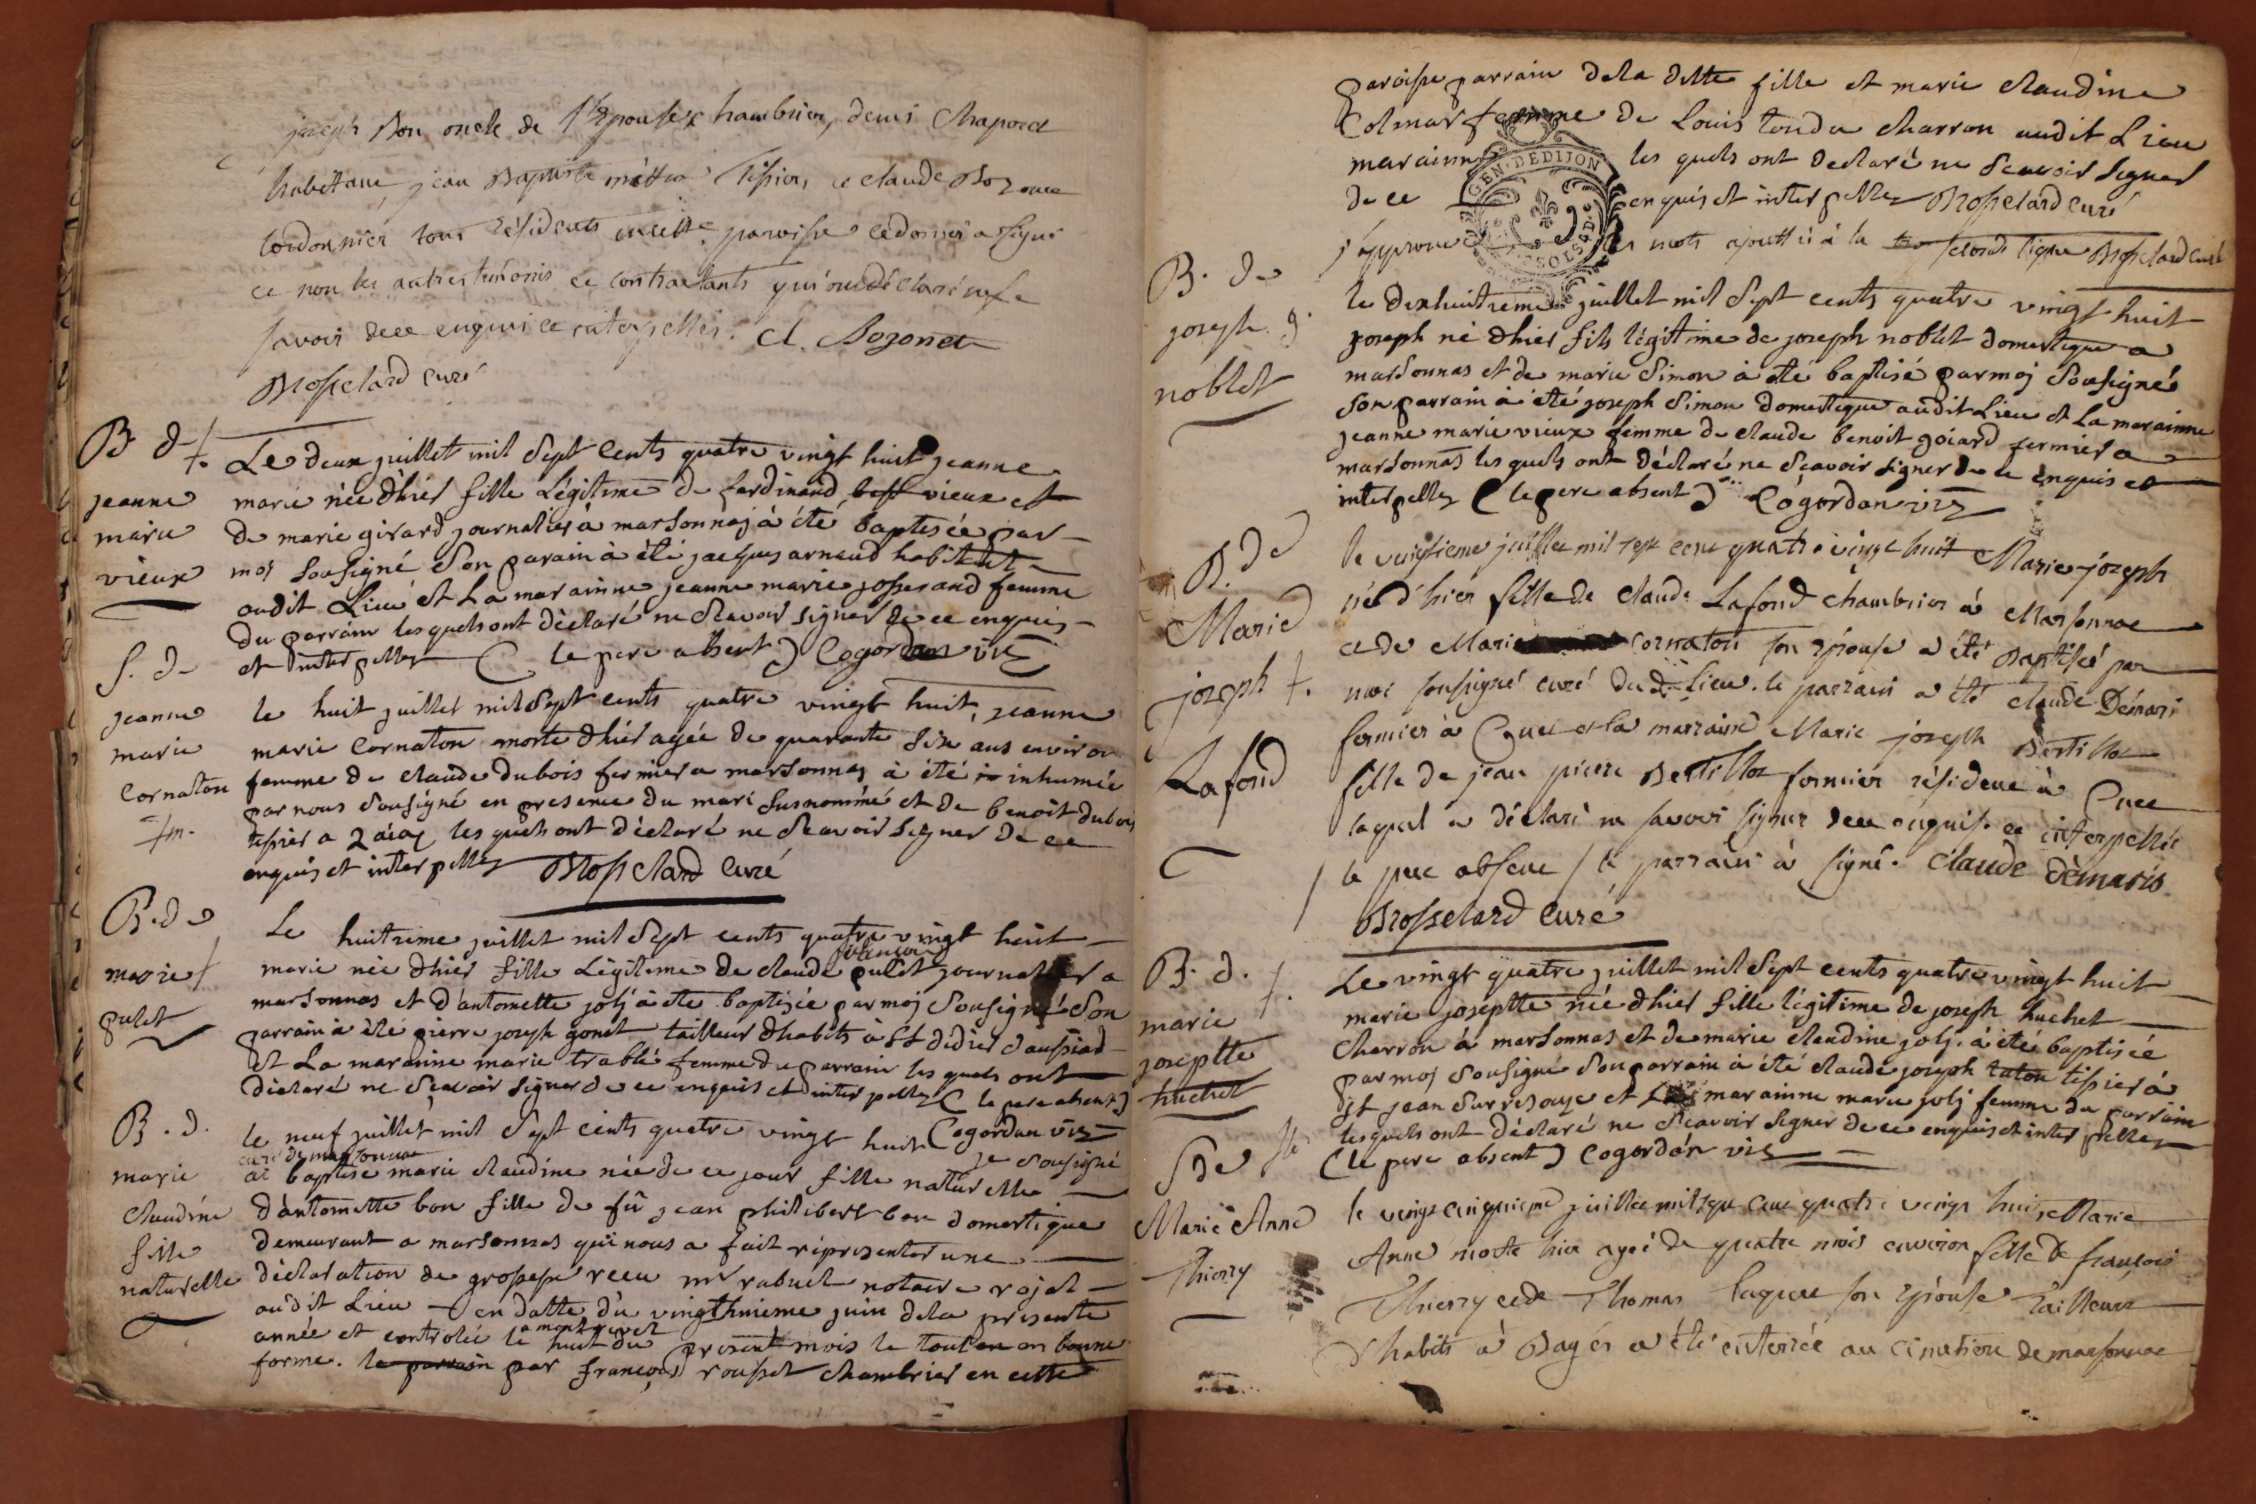 joseph Bon oncle de l'épouse chambrier, denis Chaponet
habitant, jean Baptiste tissier, et claude Bozonet
cordonnier tous résidents en cette paroisse ce dernier a signé
et non les autres témoins et contractants qui ont déclaré ne le
savoir de ce enquis et interpellés. Cl. Bozonet
Brosselard curé
B. d.
jeanne
marie
vieux
Le deux juillet mil Sept Cents quatre vingt huit jeanne
marie née d'hier fille Légitime de ferdinand vieux et
de marie girard journalier à marsonnaj à été baptisée par
moj Sousigné Son parain à été jacques arnaud habitant
audit Lieu et La marainne jeanne marie josserand femme
du parrain lesquels ont déclaré ne Sçavoir signer de ce enquis
et interpellez ( le pere absent ) Cogordan vic
S. de
jeanne
marie
Cornaton
fm.
le huit juillet mil Sept cents quatre vingt huit, jeanne
marie Cornaton morte d'hier agée de quarante six ans environ
femme de claude dubois fermier a marsonnas à été inhumée
par nous Sousigné en presence du mari Susnommé et de benoit dubois
tissier a lesquels ont déclaré ne Sçavoir signer de ce
enquis et interpellez Brosselard Curé
B. de
marie
pulet
Le huitieme juillet mil Sept cents quatre vingt huit
marie née d'hier fille Légiteme de claude pulet journalier a
marsonnas et d'antoinette jolj à été baptizée par moj Sousigné Son
parrain à été pierre joseph gonet tailleur d'habits à St didier d'aussiad
et La marainne marie trablé femme du parrain les quels ont
déclaré ne Sçavoir signer de ce enquis et interpellez ( le pere absent )
Cogordan vic
B. d.
marie
Claudine
fille
naturelle
le neuf juillet mil Sept cents quatre vingt huit je sousigné
curé de marsonnac
ai baptisé marie claudine née de ce jour fille naturelle
d'antoinette bon fille de fû jean philibert bon domestique
demeurant a marsonnas qui nous a fait réprésenter une
déclaration de grossesse recu mr rabuel notaire rojal
au dit Lieu en datte du vingthuitieme juin dela présente
a montrevel
année et controlée le huit du présent mois le tout en bonne
forme. le parrain par françois rousset chambrier en cette
paroisse parrain dela ditte fille et marie claudine
Colmar femme de Louis tondu charron audit Lieu
marainne les quels ont declaré ne Scavoir signer
de ce enquis et interpellez Brosselard curé
GEN. DE DIJON
j'approuve les mots ajouttés à la seconde ligne Brosselard curé
B. de
joseph
noblet
le dixhuitieme juillet mil Sept cents quatre vingt huit
joseph né d'hier fils légitime de joseph noblet domestique a
marsonnas et de marie Simon à été baptisé par moj Sousigné
Son parrain à été joseph Simon domestique audit Lieu et La marainne
jeanne marie vieux femme de claude benoit goiard fermier a
marsonnas les quels ont déclaré ne Sçavoir signer de ce enquis et
interpellez ( le pere absent ) Cogordan vic
B. de
Marie
joseph
Lafond
le vingtieme juillet mil sept cent quatre vingt huit Marie joseph
née d'hier fille de Claude Lafond chambrier à Marsonnac
et de Marie Cornaton son épouse a été Baptisée par
moi soussigné curé du d. lieu. le parrain a été claude Démari
fermier à Cuet et la marraine Marie joseph Bertillot
fille de jean pierre Bertillot fermier résident à Cuet
laquel a déclaré ne savoir signer de ce enquise et interpellée
/ le pere absent / le parrain à signé. Claude Démaris
Brosselard Curé
B. d.
marie
joseptte
huchet
Le vingt quatre juillet mil Sept cents quatre vingt huit
marie joseptte née d'hier fille légitime de joseph huchet
Charron à marsonnas et de marie claudine jolj. à été baptisée
par moj Sousigné Son parrain à été claude joseph taton tissier à
st jean Surresouze et marainne marie jolj femme du parrain
lesquels ont déclaré ne Sçavoir signer de ce enquis et interpellez
( le pere absent ) Cogordan vic
S de
Marie Anne
Thierry
le vingt cinquieme juillet mil sept cent quatre vingt huit Marie
Anne morte hier agée de quatre mois environ fille de françois
Thierry et de Thomas laquet son épouse Tailleur
d'habits à Bagés a été enterrée au cimetiere de marsonnac